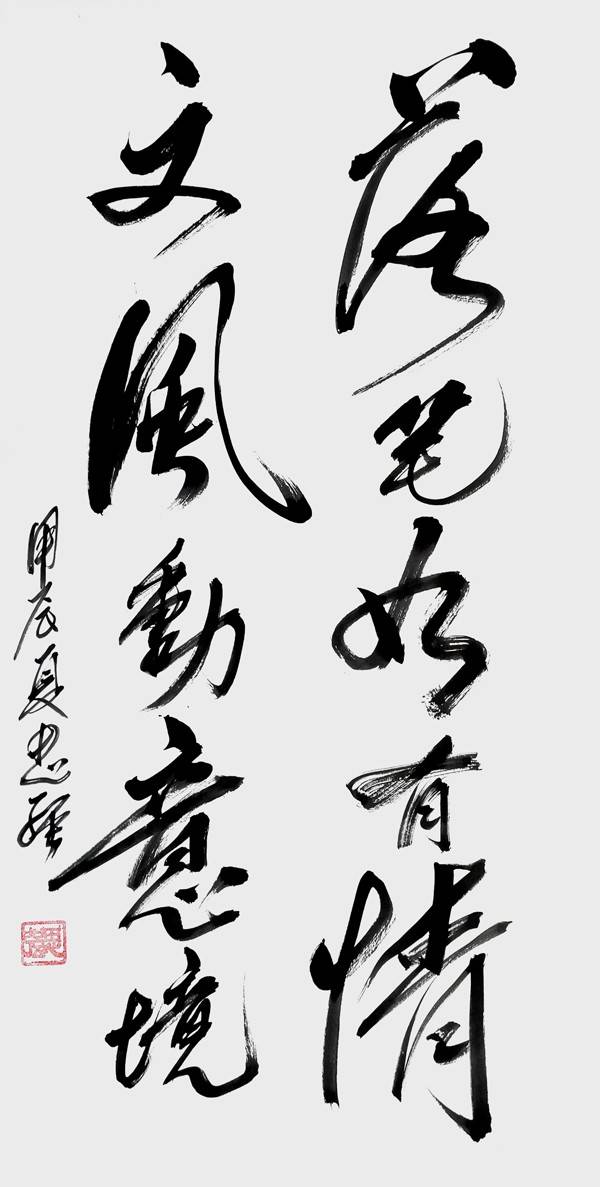 落笔如有情
文風動意境
甲辰夏忠